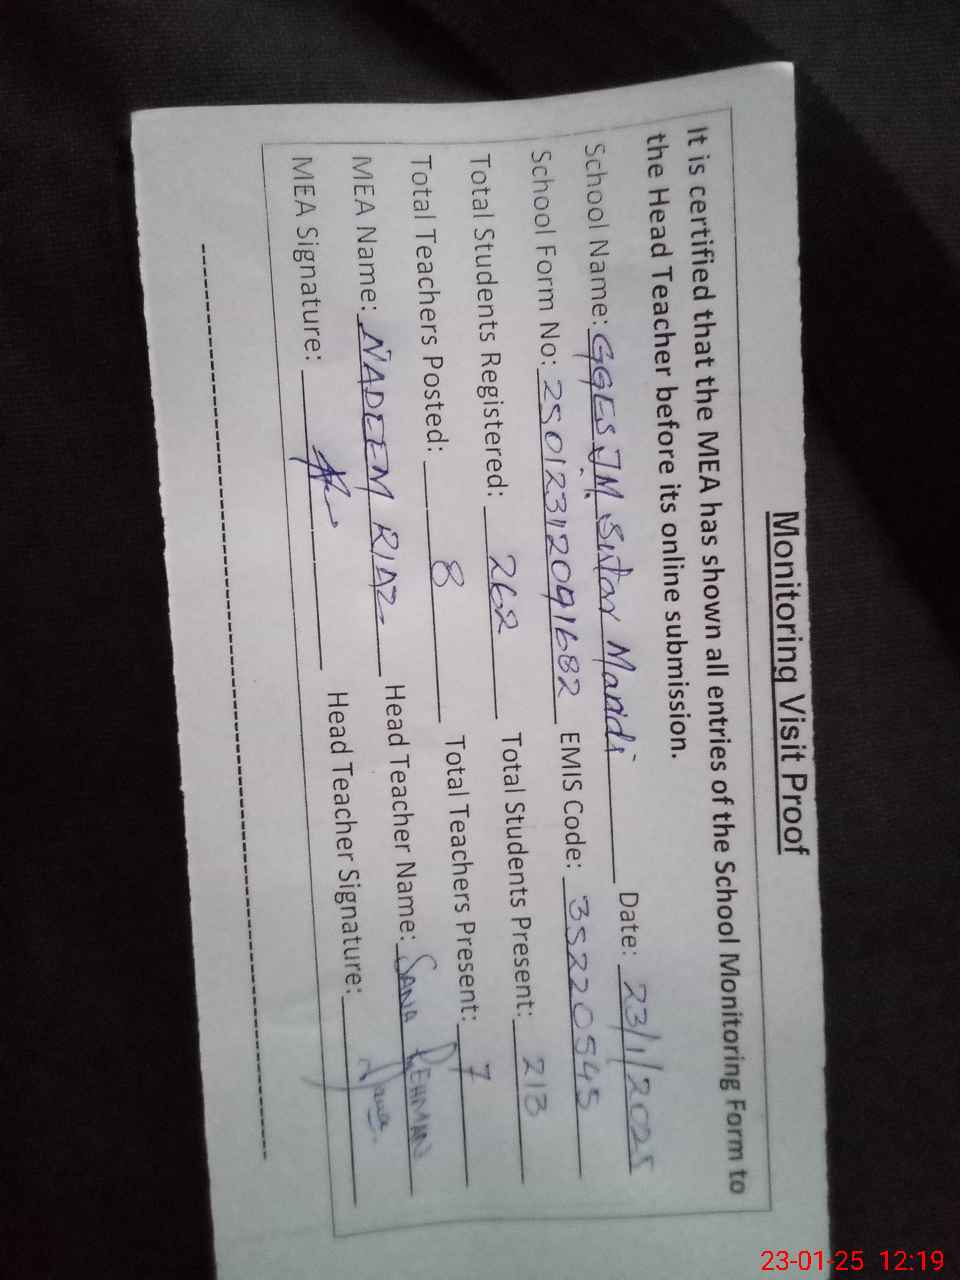 Monitoring Visit Proof
It is certified that the MEA has shown all entries of the School Monitoring Form to
the Head Teacher before its online submission.
School Name: GGES J.M. Sutar Mandi Date: 23/1/2025
School Form No: 25012312091682 EMIS Code: 35220545
Total Students Registered: 262 Total Students Present: 213
Total Teachers Posted: 8 Total Teachers Present: 7
MEA Name: NADEEM RIAZ Head Teacher Name: SANA REHMAN
MEA Signature: Head Teacher Signature: Sana
23-01-25 12:19